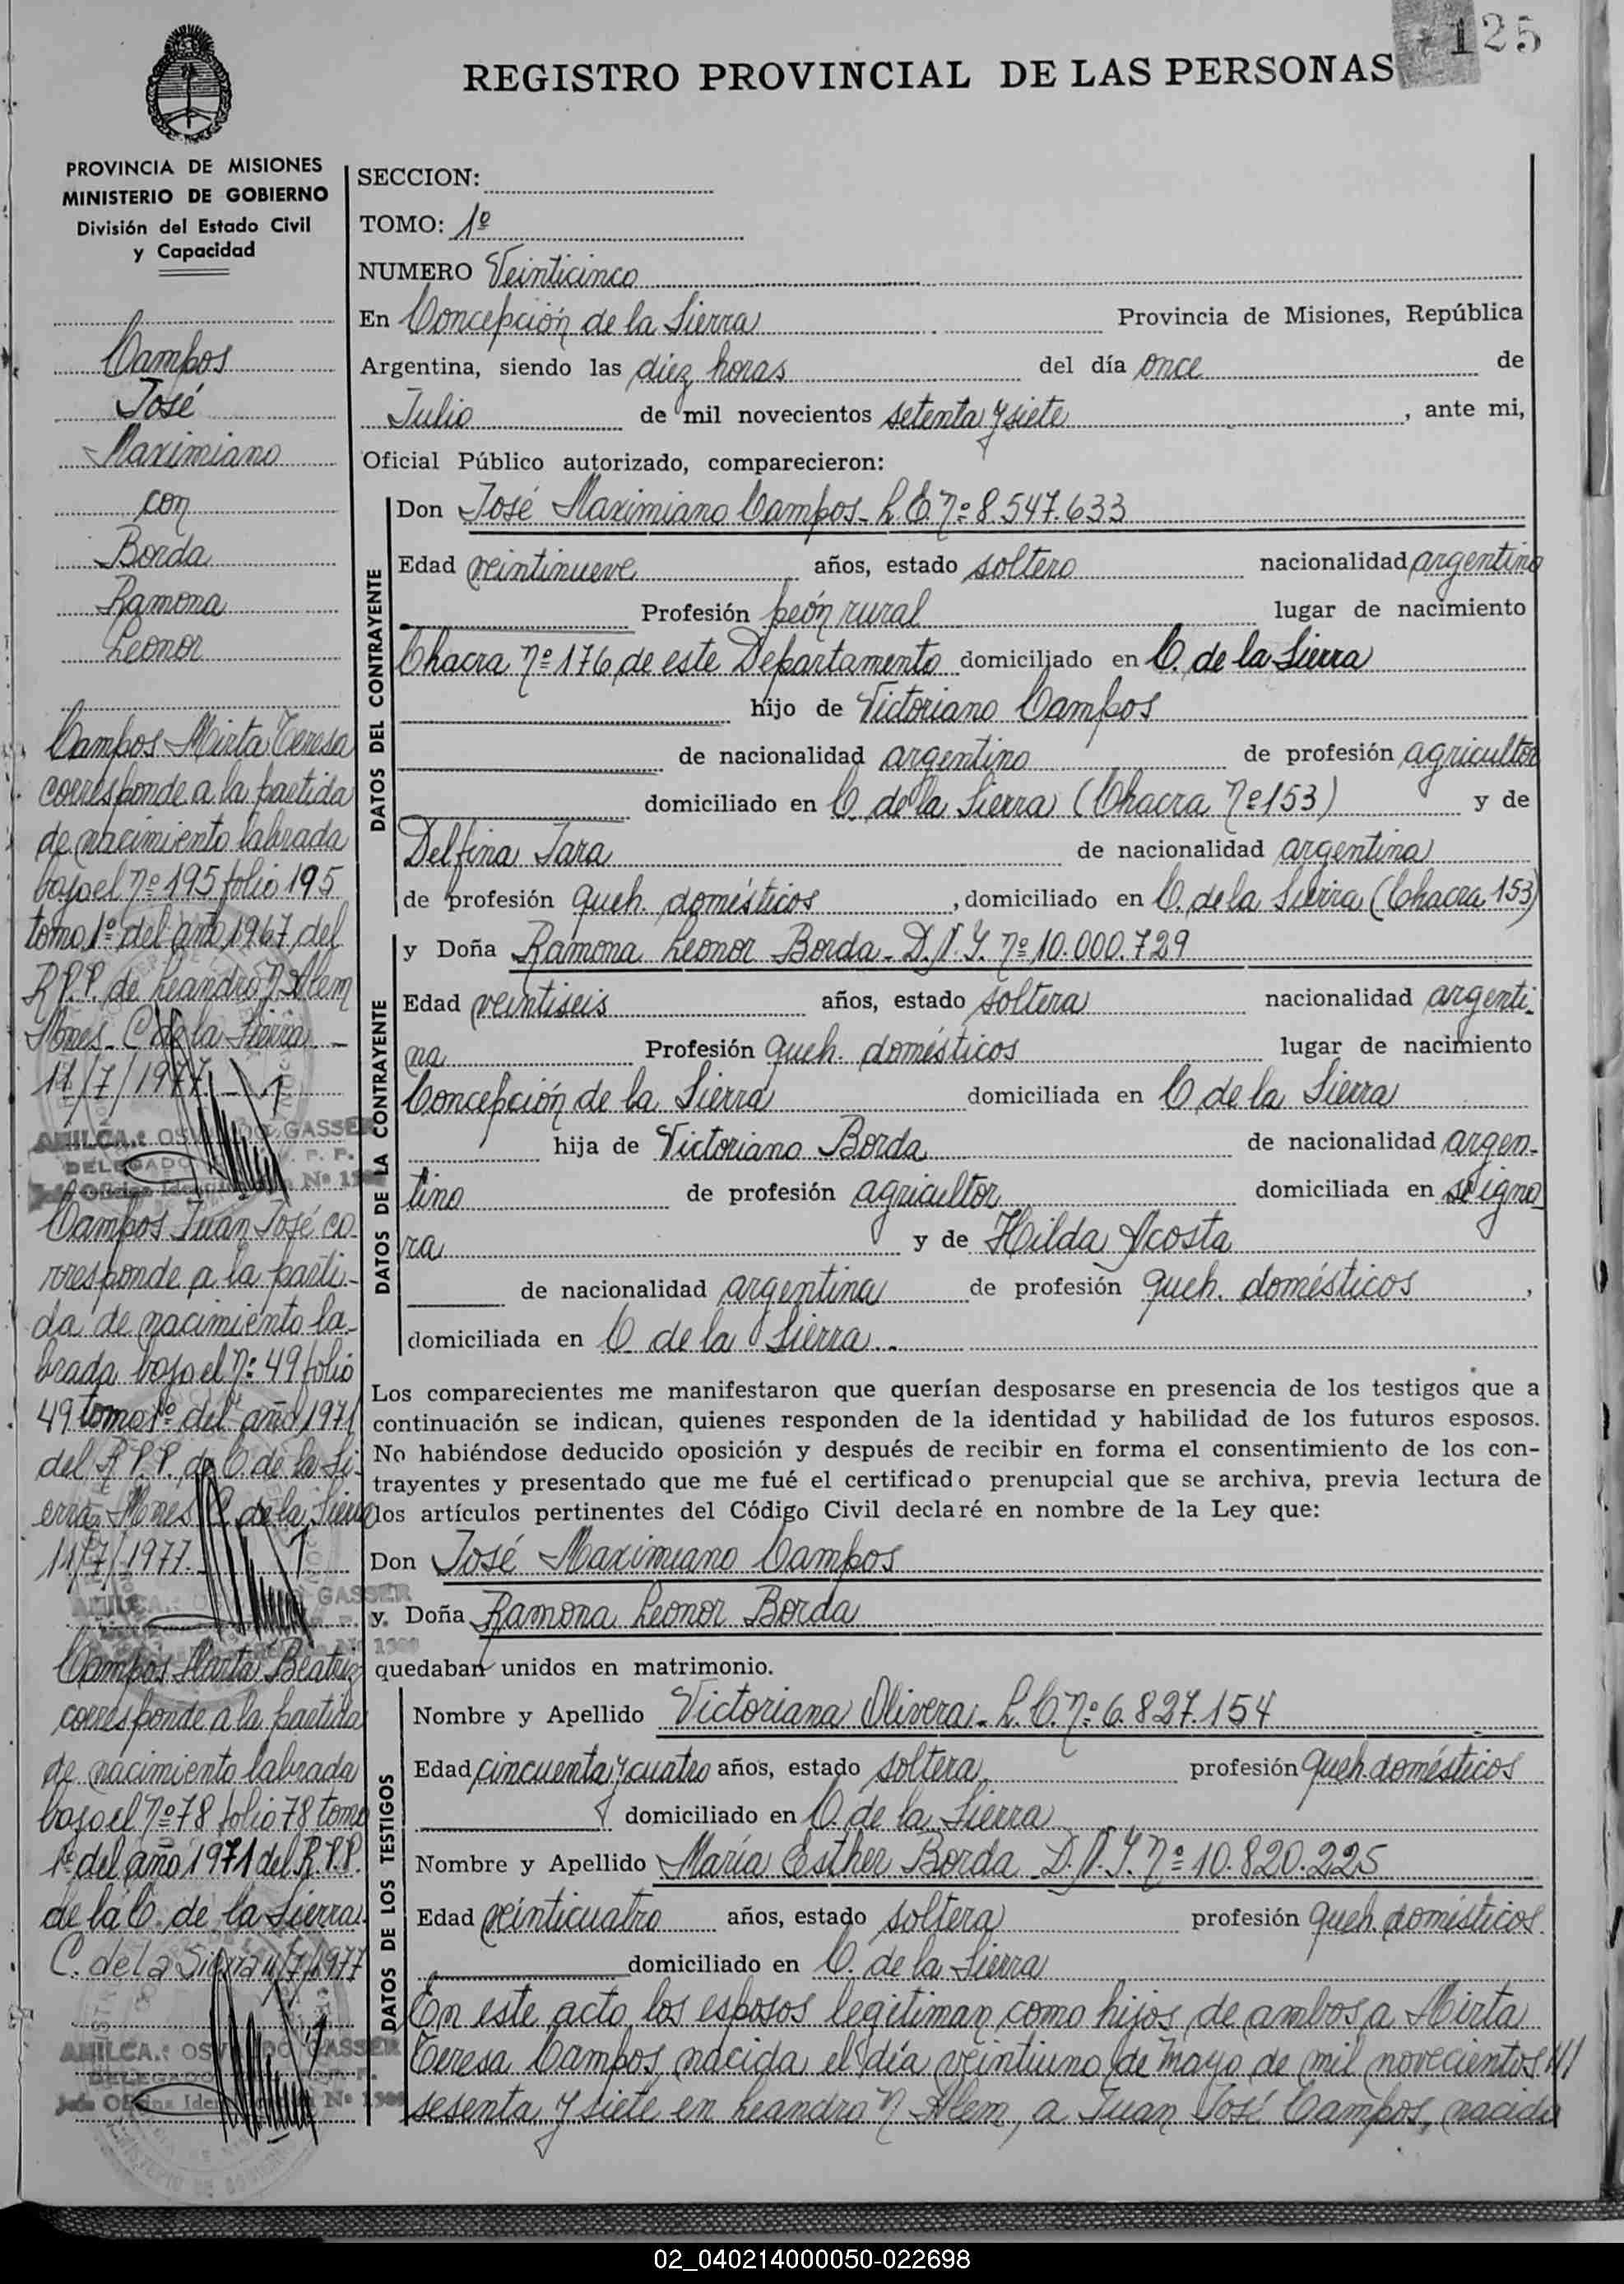 125
REGISTRO PROVINCIAL DE LAS PERSONAS
PROVINCIA DE MISIONES
MINISTERIO DE GOBIERNO
División del Estado Civil
y Capacidad
Campos
José
Maximiano
con
Borda
Ramona
Leonor
Campos Mirta Teresa
corresponde a la partida
de nacimiento labrada
bajo el Nº 195 folio 195
tomo 1º del año 1967 del
R.P.P. de Leandro N. Alem
Mnes. C de la Sierra
11/7/1977.
GASSER
DELEGADO R. P. P.
Campos Juan José co-
rresponde a la parti-
da de nacimiento la-
brada bajo el Nº 49 folio
49 tomo 1º del año 1971
del R.P.P. de C. de la Si-
erra Mnes C. de la Sierra
11/7/1977.
GASSER
Campos Marta Beatriz
corresponde a la partida
de nacimiento labrada
bajo el Nº 78 folio 78 tomo
1º del año 1971 del R.P.P.
de la C. de la Sierra.
C. de la Sierra 11/7/1977
GASSER
DELEGADO R. P. P.
SECCION:
TOMO: 1º
NUMERO Veinticinco
En Concepción de la Sierra Provincia de Misiones, República
Argentina, siendo las diez horas del día once de
Julio de mil novecientos setenta y siete, ante mi,
Oficial Público autorizado, comparecieron:
DATOS DEL CONTRAYENTE
Don José Maximiano Campos- L.E. Nº 8.547.633
Edad veintinueve años, estado soltero nacionalidad argentino
Profesión peón rural lugar de nacimiento
Chacra Nº 176 de este Departamento domiciliado en C. de la Sierra
hijo de Victoriano Campos
de nacionalidad argentino de profesión agricultor
domiciliado en C. de la Sierra (Chacra Nº 153) y de
Delfina Jara de nacionalidad argentina
de profesión queh. domésticos, domiciliado en C. de la Sierra (Chacra 153)
DATOS DE LA CONTRAYENTE
y Doña Ramona Leonor Borda- D.N.I. Nº 10.000.729
Edad veintiseis años, estado soltera nacionalidad argenti-
na Profesión queh. domésticos lugar de nacimiento
Concepción de la Sierra domiciliada en C de la Sierra
hija de Victoriano Borda de nacionalidad argen-
tino de profesión agricultor domiciliada en se igno
ra y de Hilda Acosta
de nacionalidad argentina de profesión queh. domésticos,
domiciliada en C. de la Sierra.
Los comparecientes me manifestaron que querían desposarse en presencia de los testigos que a
continuación se indican, quienes responden de la identidad y habilidad de los futuros esposos.
No habiéndose deducido oposición y después de recibir en forma el consentimiento de los con-
trayentes y presentado que me fué el certificado prenupcial que se archiva, previa lectura de
los artículos pertinentes del Código Civil declaré en nombre de la Ley que:
Don José Maximiano Campos
y. Doña Ramona Leonor Borda
quedaban unidos en matrimonio.
DATOS DE LOS TESTIGOS
Nombre y Apellido Victoriana Olivera- L.C. Nº 6.827.154
Edad cincuenta y cuatro años, estado soltera profesión queh. domésticos
domiciliado en C. de la Sierra
Nombre y Apellido María Esther Borda D.N.I. Nº 10.820.225
Edad veinticuatro años, estado soltera profesión queh. domésticos.
domiciliado en C. de la Sierra
En este acto los esposos legitiman como hijos de ambos a Mirta
Teresa Campos, nacida el día veintiuno de mayo de mil novecientos ///
sesenta y siete en Leandro N Alem, a Juan José Campos, nacido
02_040214000050-022698